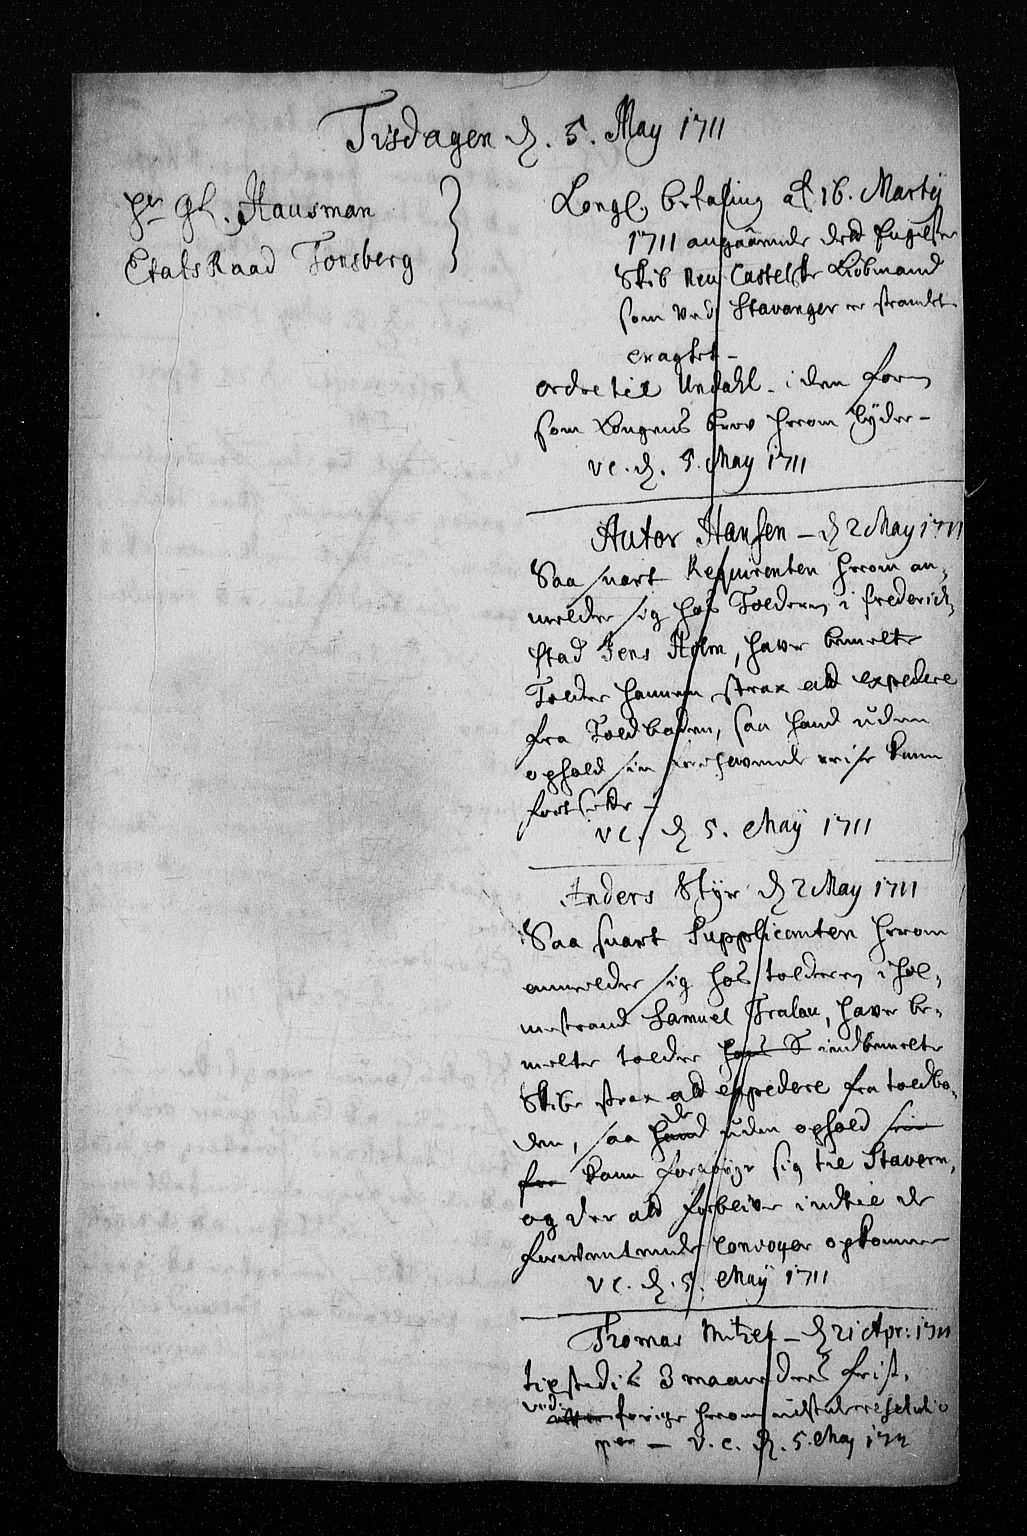 Tisdagen d. 5. May 1711
Hr gl. Hausman
Etats Raad Tonsberg
Kongl. befaling af 16. Martij
1711 angaaende dend Engelske
Skib Neu Castelske Kiøbmand
som ved Stavanger er strandet
eragtet -
ordre til Undahl. i den form
som Kongens brev herom lyder -
vc. d. 5. May 1711
Autor Hansen - d 2 May 1711
Saa snart Requirenten herom an-
melder sig hos Tolderen i Frederich-
stad Jens Holm, haver bemelte
Tolder hannem strax at expedere
fra Toldboden, saa hand uden
ophold sin reise kunde
fortsette -
vc. d 5. Maij 1711
Anders Styr d 2 May 1711
Saa snart Supplicanten herom
anmelder sig hos tolderen i Hol-
mestrand Samuel Tralau, haver be-
melte tolder indbemelte
Skibe strax at expedere fra toldbo-
den, saa de uden ophold
kand forføye sig til Stavern,
og der at forblive indtil de
forventende Convoyer opkommer
vc. d. 5. Maij 1711
Thomas Mitzel - d 21 Apr: 1711
tilstedis 3 maaneders frist,
ved forige herom udstæde resolutio
nen - v.c. d. 5. May 1711